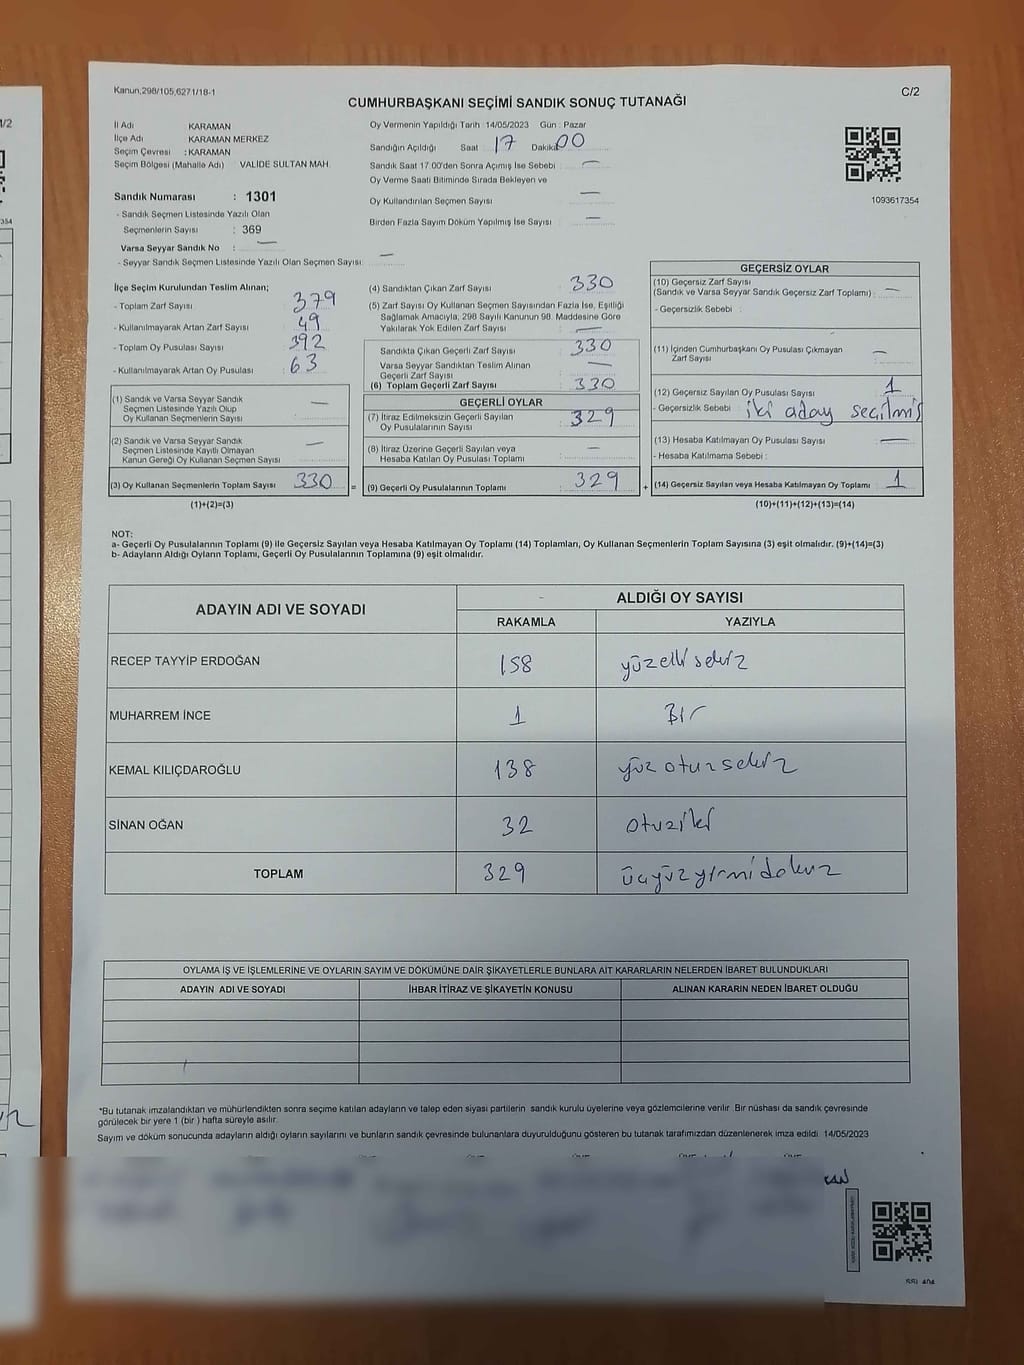 Kanun,298/105,6271/18-1
C/2
CUMHURBAŞKANI SEÇİMİ SANDIK SONUÇ TUTANAĞI
İl Adı KARAMAN
İlçe Adı KARAMAN MERKEZ
Seçim Çevresi : KARAMAN
Seçim Bölgesi (Mahalle Adı) : VALİDE SULTAN MAH.
Sandık Numarası : 1301
- Sandık Seçmen Listesinde Yazılı Olan
Seçmenlerin Sayısı : 369
Varsa Seyyar Sandık No : —
- Seyyar Sandık Seçmen Listesinde Yazılı Olan Seçmen Sayısı: —
Oy Vermenin Yapıldığı Tarih 14/05/2023 Gün : Pazar
Sandığın Açıldığı Saat 17 Dakika 00
Sandık Saat 17.00'den Sonra Açımış İse Sebebi : —
Oy Verme Saati Bitiminde Sırada Bekleyen ve
Oy Kullandırılan Seçmen Sayısı : —
Birden Fazla Sayım Döküm Yapılmış İse Sayısı : —
1093617354
İlçe Seçim Kurulundan Teslim Alınan;
- Toplam Zarf Sayısı : 379
- Kullanılmayarak Artan Zarf Sayısı : 49
- Toplam Oy Pusulası Sayısı : 392
- Kullanılmayarak Artan Oy Pusulası : 63
(1) Sandık ve Varsa Seyyar Sandık
Seçmen Listesinde Yazılı Olup
Oy Kullanan Seçmenlerin Sayısı : —
(2) Sandık ve Varsa Seyyar Sandık
Seçmen Listesinde Kayıtlı Olmayan
Kanun Gereği Oy Kullanan Seçmen Sayısı : —
(3) Oy Kullanan Seçmenlerin Toplam Sayısı : 330
(1)+(2)=(3)
(4) Sandıktan Çıkan Zarf Sayısı : 330
(5) Zarf Sayısı Oy Kullanan Seçmen Sayısından Fazla İse, Eşitliği
Sağlamak Amacıyla; 298 Sayılı Kanunun 98. Maddesine Göre
Yakılarak Yok Edilen Zarf Sayısı : —
Sandıkta Çıkan Geçerli Zarf Sayısı : 330
Varsa Seyyar Sandıktan Teslim Alınan
Geçerli Zarf Sayısı : —
(6) Toplam Geçerli Zarf Sayısı : 330
GEÇERLİ OYLAR
(7) İtiraz Edilmeksizin Geçerli Sayılan
Oy Pusulalarının Sayısı : 329
(8) İtiraz Üzerine Geçerli Sayılan veya
Hesaba Katılan Oy Pusulası Toplamı : —
= (9) Geçerli Oy Pusulalarının Toplamı : 329
GEÇERSİZ OYLAR
(10) Geçersiz Zarf Sayısı
(Sandık ve Varsa Seyyar Sandık Geçersiz Zarf Toplamı) : —
- Geçersizlik Sebebi :
(11) İçinden Cumhurbaşkanı Oy Pusulası Çıkmayan
Zarf Sayısı : —
(12) Geçersiz Sayılan Oy Pusulası Sayısı : 1
- Geçersizlik Sebebi : iki aday seçilmiş
(13) Hesaba Katılmayan Oy Pusulası Sayısı : —
- Hesaba Katılmama Sebebi :
+ (14) Geçersiz Sayılan veya Hesaba Katılmayan Oy Toplamı : 1
(10)+(11)+(12)+(13)=(14)
NOT:
a- Geçerli Oy Pusulalarının Toplamı (9) ile Geçersiz Sayılan veya Hesaba Katılmayan Oy Toplamı (14) Toplamları, Oy Kullanan Seçmenlerin Toplam Sayısına (3) eşit olmalıdır. (9)+(14)=(3)
b- Adayların Aldığı Oyların Toplamı, Geçerli Oy Pusulalarının Toplamına (9) eşit olmalıdır.
ADAYIN ADI VE SOYADI ALDIĞI OY SAYISI
RAKAMLA YAZIYLA
RECEP TAYYİP ERDOĞAN 158 yüzellisekiz
MUHARREM İNCE 1 Bir
KEMAL KILIÇDAROĞLU 138 yüz otuzsekiz
SİNAN OĞAN 32 otuziki
TOPLAM 329 üçyüzyirmidokuz
OYLAMA İŞ VE İŞLEMLERİNE VE OYLARIN SAYIM VE DÖKÜMÜNE DAİR ŞİKAYETLERLE BUNLARA AİT KARARLARIN NELERDEN İBARET BULUNDUKLARI
ADAYIN ADI VE SOYADI İHBAR İTİRAZ VE ŞİKAYETİN KONUSU ALINAN KARARIN NEDEN İBARET OLDUĞU
*Bu tutanak imzalandıktan ve mühürlendikten sonra seçime katılan adayların ve talep eden siyasi partilerin sandık kurulu üyelerine veya gözlemcilerine verilir. Bir nüshası da sandık çevresinde
görülecek bir yere 1 (bir ) hafta süreyle asılır.
Sayım ve döküm sonucunda adayların aldığı oyların sayılarını ve bunların sandık çevresinde bulunanlara duyurulduğunu gösteren bu tutanak tarafımızdan düzenlenerek imza edildi. 14/05/2023